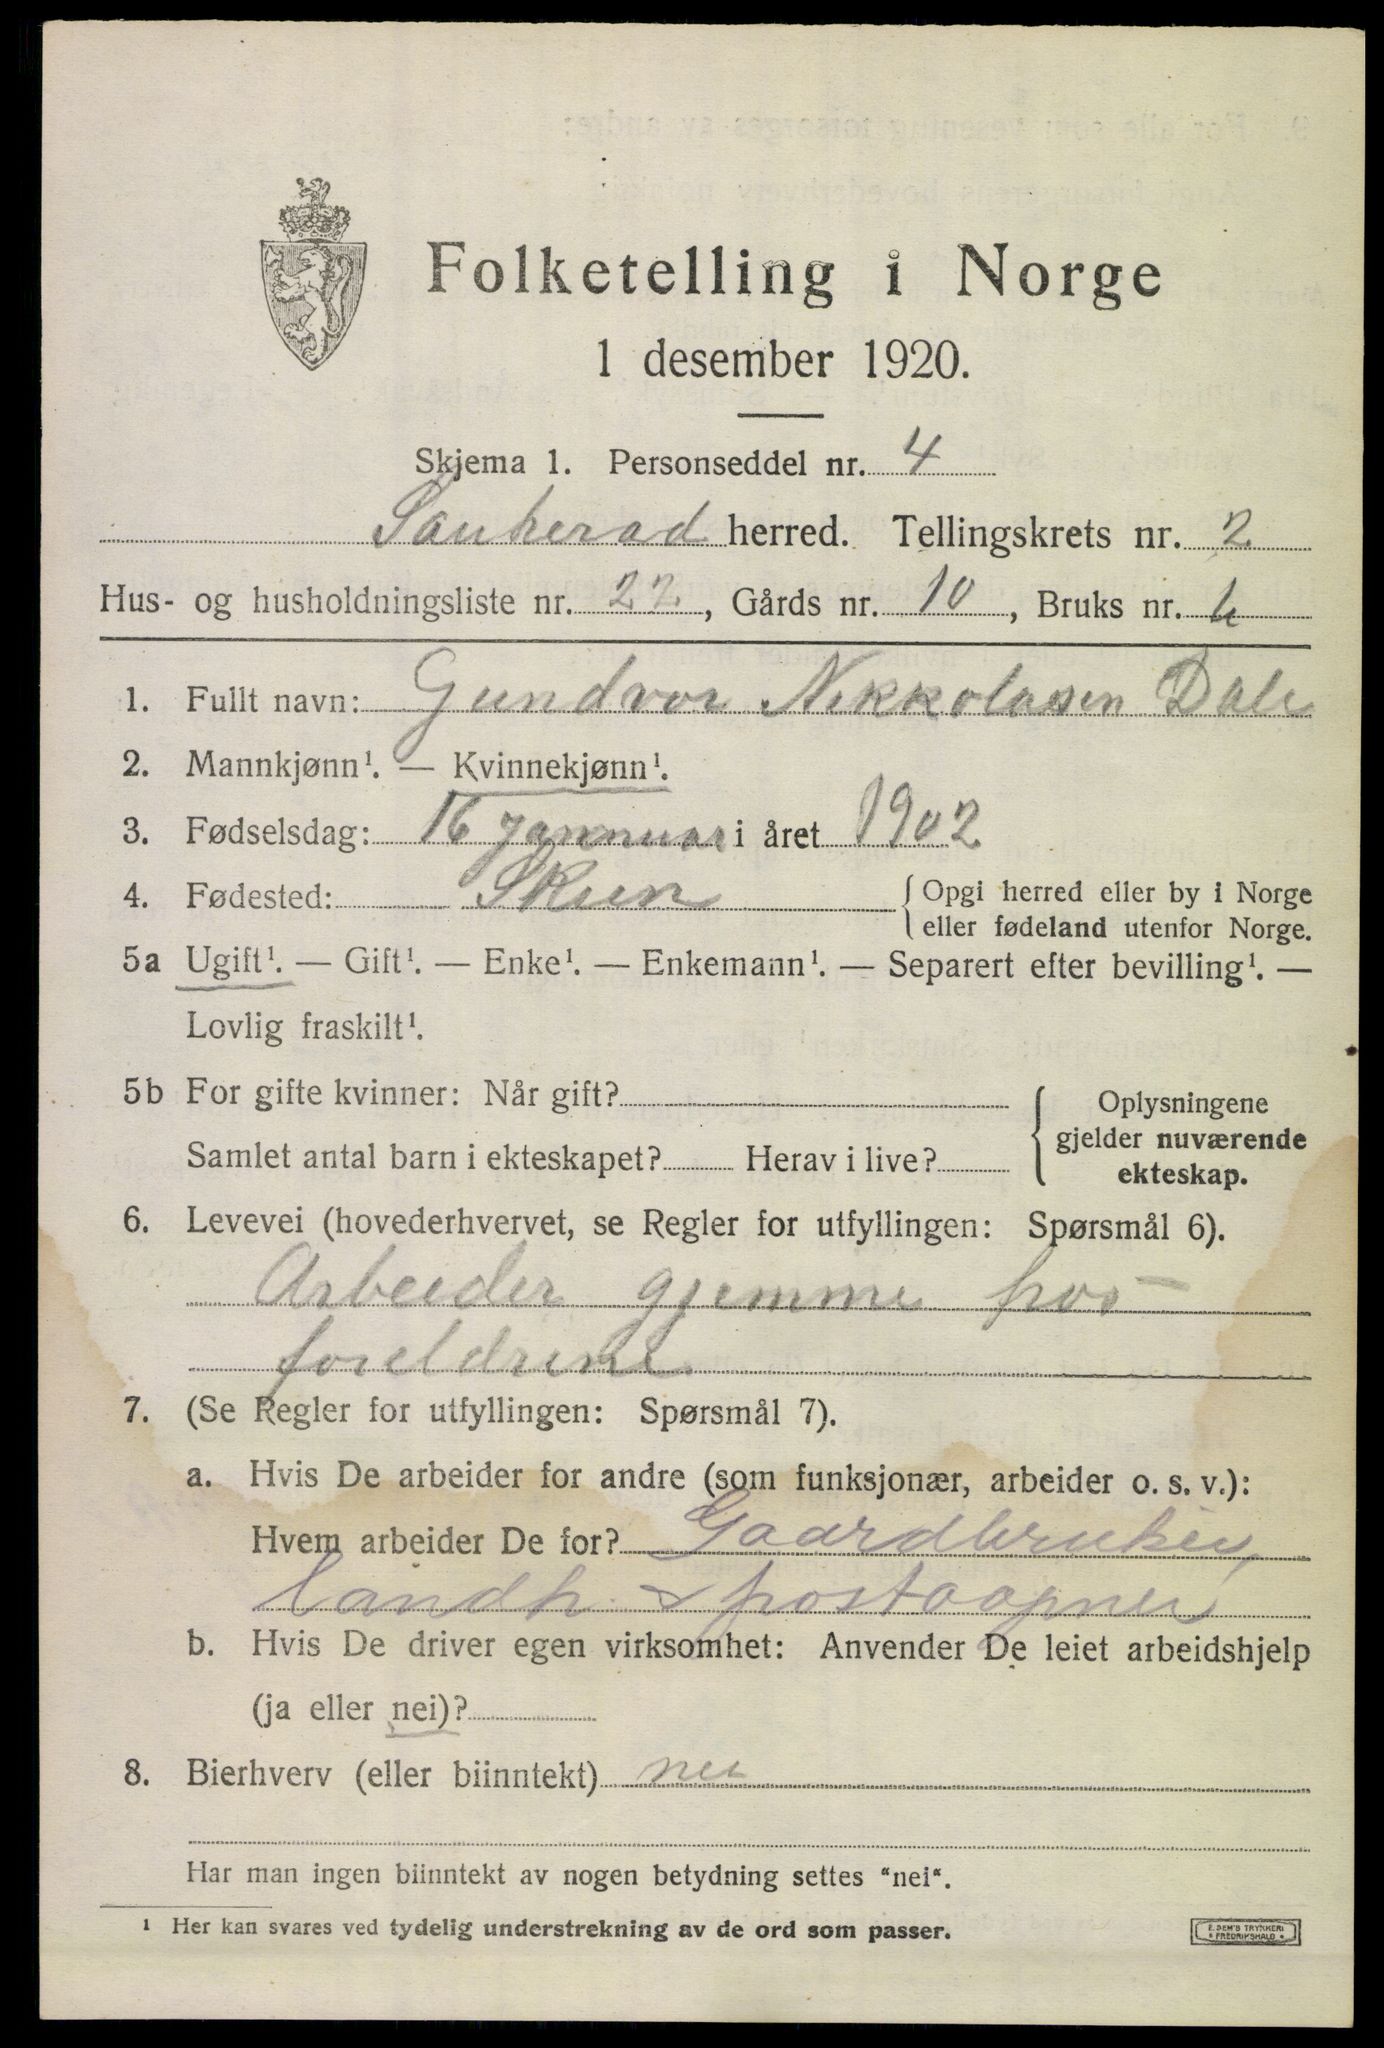 Folketelling i Norge
1 desember 1920.
Skjema 1. Personseddel nr. 4
Sauherad herred. Tellingskrets nr. 2
Hus- og husholdningsliste nr. 22, Gårds nr. 10, Bruks nr.
1. Fullt navn: Gundvor Nikkolasen Dale
2. Mannkjønn¹. — Kvinnekjønn¹.
3. Fødselsdag: 16 januar i året 1902
4. Fødested: Skien { Opgi herred eller by i Norge
eller fødeland utenfor Norge.
5a Ugift¹. — Gift¹. — Enke¹. — Enkemann¹. — Separert efter bevilling¹. —
Lovlig fraskilt¹.
5b For gifte kvinner: Når gift? { Oplysningene
gjelder nuværende
Samlet antal barn i ekteskapet? Herav i live?
ekteskap.
6. Levevei (hovederhvervet, se Regler for utfyllingen: Spørsmål 6).
Arbeider gjemme hos
foreldrene
7. (Se Regler for utfyllingen: Spørsmål 7).
a. Hvis De arbeider for andre (som funksjonær, arbeider o. s. v.):
Hvem arbeider De for? Gaardbruker,
landh. & postaapner
b. Hvis De driver egen virksomhet: Anvender De leiet arbeidshjelp
(ja eller nei)?
8. Bierhverv (eller biinntekt) nei
Har man ingen biinntekt av nogen betydning settes "nei".
¹ Her kan svares ved tydelig understrekning av de ord som passer.
E. SEM'S TRYKKERI
FREDRIKSHALD